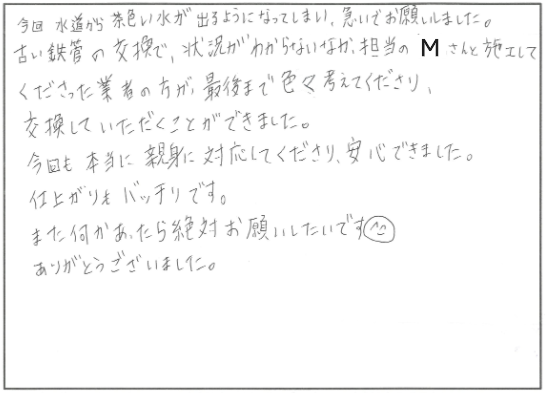 今回 水道から 茶色い水が 出るようになってしまい、急いでお願いしました。
古い鉄管の交換で、状況がわからないなか、担当の Mさんと施工して
くださった業者の方が、最後まで色々考えてくださり、
交換していただくことができました。
今回も 本当に 親身に対応してくださり、安心できました。
仕上がりも バッチリです。
また何かあったら絶対お願いしたいです
ありがとうございました。